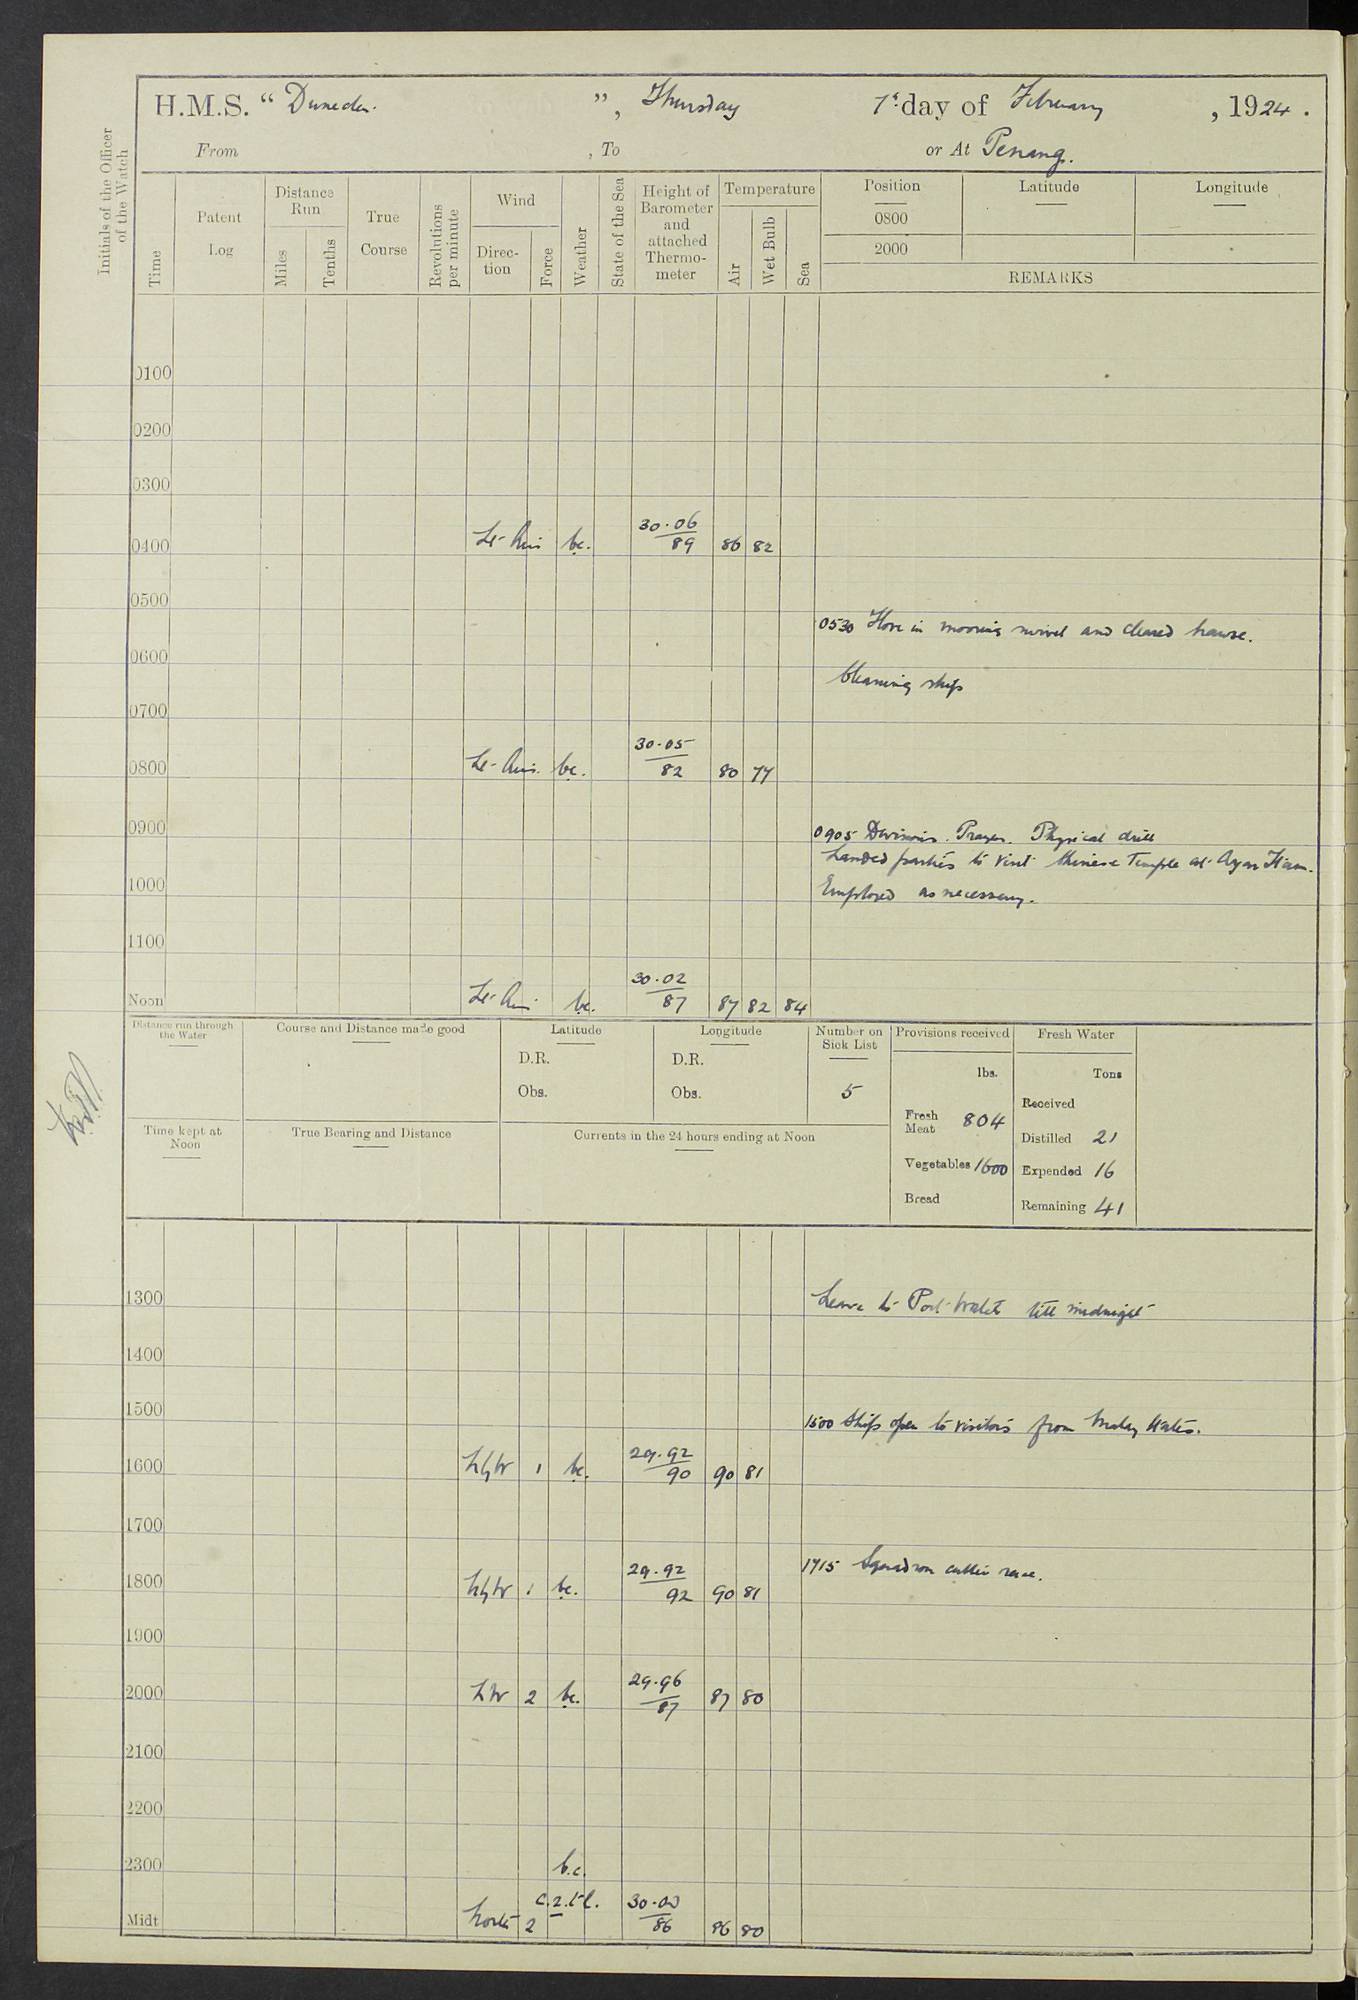 H.M.S. “ Dunedin. ”, Thursday 7th day of February, 1924.
From , To or At Penang.
Initials of the Officer of the Watch
Time
Patent Log
Distance Run
Miles
Tenths
True Course
Revolutions per minute
Wind
Direction
Force
Weather
State of the Sea
Height of Barometer and attached Thermometer
Temperature
Air
Wet Bulb
Sea
Position Latitude Longitude
0800
2000
REMARKS
0100
0200
0300
0400 Lt Airs bc. 30.06 89 86 82
0500
0530 Hove in mooring swivel and cleared hawse.
0600
Cleaning ship
0700
0800 Lt Airs. bc. 30.05 82 80 77
0900
0905 Divisions. Prayers. Physical drill
Landed parties to visit Chinese Temple at Ayer Itam.
1000
Employed as necessary.
1100
Noon Lt Airs bc. 30.02 87 87 82 84
Distance run through the Water
Course and Distance made good
Latitude
D.R.
Obs.
Longitude
D.R.
Obs.
Number on Sick List
5
Provisions received
lbs.
Fresh Meat 804
Vegetables 1600
Bread
Fresh Water
Tons
Received
Distilled 21
Expended 16
Remaining 41
Time kept at Noon
True Bearing and Distance
Currents in the 24 hours ending at Noon
1300
Leave to Port Watch till midnight
1400
1500
1500 Ships open to visitors from Malay States.
1600 NbyW 1 bc. 29.92 90 90 81
1700
1715 Squadron cutter race.
1800 NbyW 1 bc. 29.92 92 90 81
1900
2000 NW 2 bc. 29.96 87 87 80
2100
2200
2300 b.c.
c.2.t.l.
Midt North 2 30.00 86 86 80